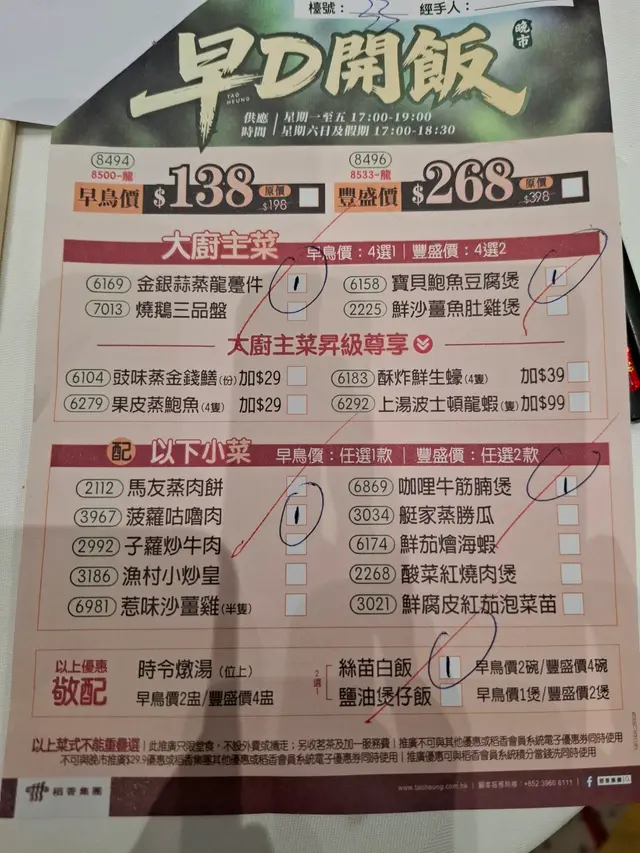 檯號： 33 經手人：
早D開飯 晚市
TAO HEUNG
供應時間 星期一至五 17:00-19:00
星期六日及假期 17:00-18:30
8494 8496
8500-龍 8533-龍
早鳥價 $138 原價 $198 豐盛價 $268 原價 $398
大廚主菜 早鳥價：4選1 | 豐盛價：4選2
6169 金銀蒜蒸龍躉件 1 6158 寶貝鮑魚豆腐煲 1
7013 燒鵝三品盤 2225 鮮沙薑魚肚雞煲
大廚主菜昇級尊享
6104 豉味蒸金錢鱔(份) 加$29 6183 酥炸鮮生蠔(4隻) 加$39
6279 果皮蒸鮑魚(4隻) 加$29 6292 上湯波士頓龍蝦(隻) 加$99
配 以下小菜 早鳥價：任選1款 | 豐盛價：任選2款
2112 馬友蒸肉餅 6869 咖哩牛筋腩煲 1
3967 菠蘿咕嚕肉 1 3034 艇家蒸勝瓜
2992 子蘿炒牛肉 6174 鮮茄燴海蝦
3186 漁村小炒皇 2268 酸菜紅燒肉煲
6981 惹味沙薑雞(半隻) 3021 鮮腐皮紅茄泡菜苗
以上優惠 時令燉湯(位上) 2選1 絲苗白飯 1 早鳥價2碗/豐盛價4碗
敬配 早鳥價2盅/豐盛價4盅 鹽油煲仔飯 早鳥價1煲/豐盛價2煲
以上菜式不能重疊選 | 此推廣只限堂食，不設外賣或攜走；另收茗茶及加一服務費 | 推廣不可與其他優惠或稻香會員系統電子優惠券同時使用
不可與晚市推廣$29.9優惠或稻香集團其他優惠或稻香會員系統電子優惠券同時使用 | 推廣優惠可與稻香會員系統積分當錢洗同時使用
稻香集團 www.taoheung.com.hk | 顧客服務熱線：+852 3960 6111 | f 稻香集團